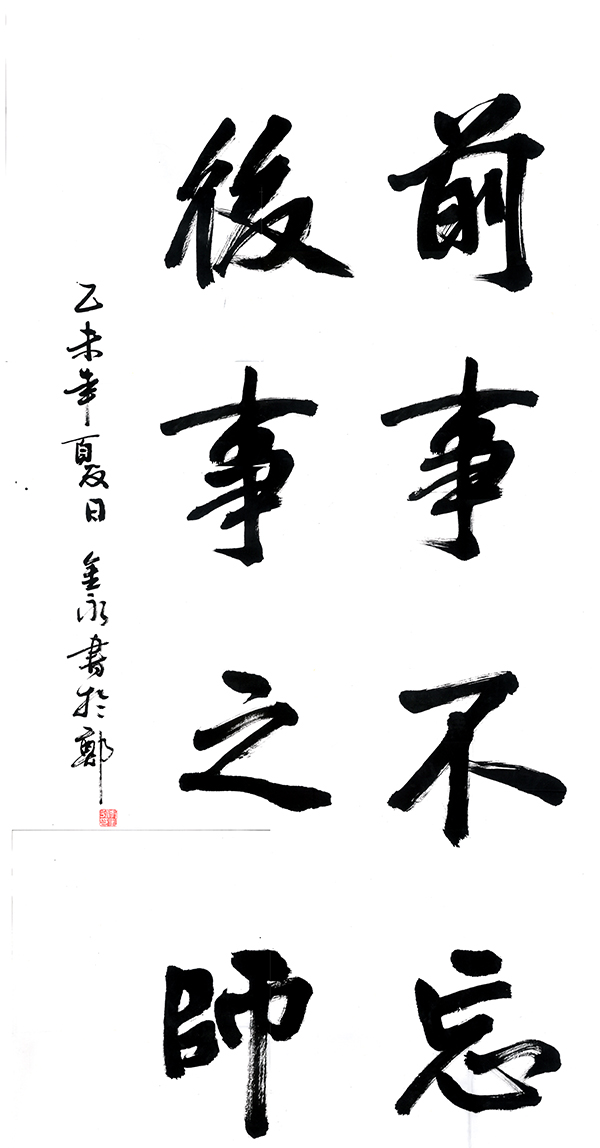 前事不忘
後事之師
乙未年夏日 金永書於鄭